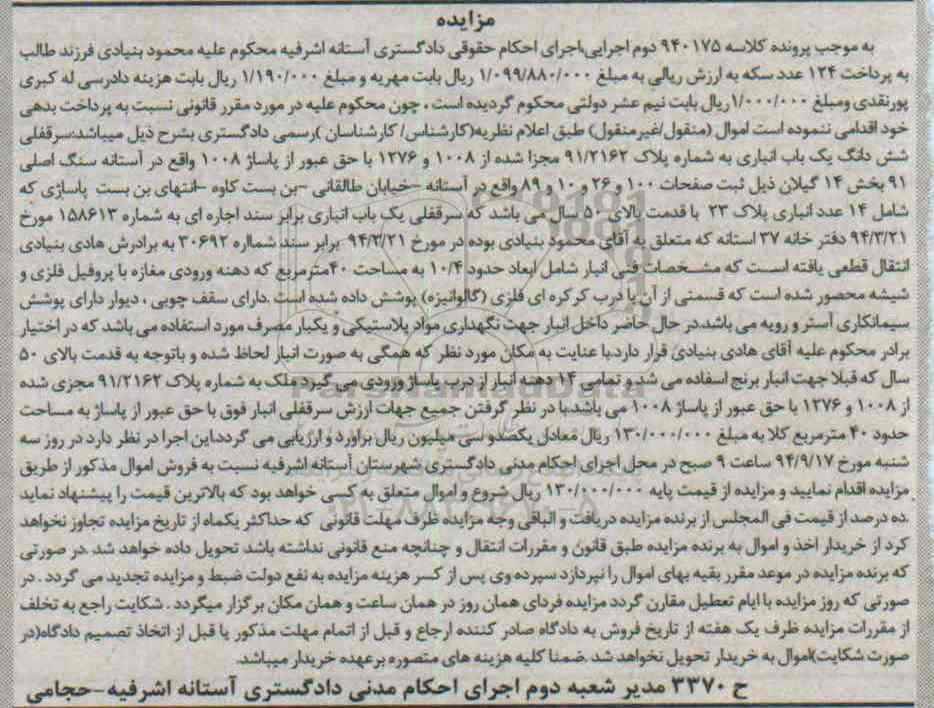 مزایده
به موجب پرونده کلاسه ۹۴۰۱۷۵ دوم اجرایی،اجرای احکام حقوقی دادگستری آستانه اشرفیه محکوم علیه محمود بنیادی فرزند طالب
به پرداخت ۱۲۴ عدد سکه به ارزش ریالی به مبلغ ۱/۰۹۹/۸۸۰/۰۰۰ ریال بابت مهریه و مبلغ ۱/۱۹۰/۰۰۰ ریال بابت هزینه دادرسی له کبری
پورنقدی ومبلغ ۱/۰۰۰/۰۰۰ریال بابت نیم عشر دولتی محکوم گردیده است ، چون محکوم علیه در مورد مقرر قانونی نسبت به پرداخت بدهی
خود اقدامی ننموده است اموال (منقول/غیرمنقول) طبق اعلام نظریه(کارشناس/ کارشناسان )رسمی دادگستری بشرح ذیل میباشد:سرقفلی
شش دانگ یک باب انباری به شماره پلاک ۹۱/۲۱۶۲ مجزا شده از ۱۰۰۸ و ۱۲۷۶ با حق عبور از پاساژ ۱۰۰۸ واقع در آستانه سنگ اصلی
۹۱ بخش ۱۴ گیلان ذیل ثبت صفحات ۱۰۰ و ۲۶ و ۱۰ و ۸۹ واقع در آستانه –خیابان طالقانی –بن بست کاوه –انتهای بن بست پاساژی که
شامل ۱۴ عدد انباری پلاک ۲۳ با قدمت بالای ۵۰ سال می باشد که سرقفلی یک باب انباری برابر سند اجاره ای به شماره ۱۵۸۶۱۳ مورخ
۹۴/۳/۲۱ دفتر خانه ۳۷ استانه که متعلق به آقای محمود بنیادی بوده در مورخ ۹۴/۳/۲۱ برابر سند شمااره ۳۰۶۹۲ به برادرش هادی بنیادی
انتقال قطعی یافته است که مشخصات فنی انبار شامل ابعاد حدود ۱۰/۴ به مساحت ۴۰مترمربع که دهنه ورودی مغازه با پروفیل فلزی و
شیشه محصور شده است که قسمتی از آن با درب کرکره ای فلزی (گالوانیزه) پوشش داده شده است .دارای سقف چوبی ، دیوار دارای پوشش
سیمانکاری آستر و رویه می باشد.در حال حاضر داخل انبار جهت نگهداری مواد پلاستیکی و یکبار مصرف مورد استفاده می باشد که در اختیار
برادر محکوم علیه آقای هادی بنیادی قرار دارد.با عنایت به مکان مورد نظر که همگی به صورت انبار لحاظ شده و باتوجه به قدمت بالای ۵۰
سال که قبلا جهت انبار برنج اسفاده می شد و تمامی ۱۴ دهنه انبار از درب پاساژ ورودی می گیرد ملک به شماره پلاک ۹۱/۲۱۶۲ مجزی شده
از ۱۰۰۸ و ۱۲۷۶ با حق عبور از پاساژ ۱۰۰۸ می باشد.با در نظر گرفتن جمیع جهات ارزش سرقفلی انبار فوق با حق عبور از پاساژ به مساحت
حدود ۴۰ مترمربع کلا به مبلغ ۱۳۰/۰۰۰/۰۰۰ ریال معادل یکصدو سی میلیون ریال براورد و ارزیابی می گردد.این اجرا در نظر دارد در روز سه
شنبه مورخ ۹۴/۹/۱۷ ساعت ۹ صبح در محل اجرای احکام مدنی دادگستری شهرستان آستانه اشرفیه نسبت به فروش اموال مذکور از طریق
مزایده اقدام نمایید و مزایده از قیمت پایه ۱۳۰/۰۰۰/۰۰۰ ریال شروع و اموال متعلق به کسی خواهد بود که بالاترین قیمت را پیشنهاد نماید
.ده درصد از قیمت فی المجلس از برنده مزایده دریافت و الباقی وجه مزایده ظرف مهلت قانونی که حداکثر یکماه از تاریخ مزایده تجاوز نخواهد
کرد از خریدار اخذ و اموال به برنده مزایده طبق قانون و مقررات انتقال و چنانچه منع قانونی نداشته باشد تحویل داده خواهد شد .در صورتی
که برنده مزایده در موعد مقرر بقیه بهای اموال را نپردازد سپرده وی پس از کسر هزینه مزایده به نفع دولت ضبط و مزایده تجدید می گردد . در
صورتی که روز مزایده با ایام تعطیل مقارن گردد مزایده فردای همان روز در همان ساعت و همان مکان برگزار میگردد . شکایت راجع به تخلف
از مقررات مزایده ظرف یک هفته از تاریخ فروش به دادگاه صادر کننده ارجاع و قبل از اتمام مهلت مذکور یا قبل از اتخاذ تصمیم دادگاه(در
صورت شکایت)اموال به خریدار تحویل نخواهد شد .ضمنا کلیه هزینه های متصوره برعهده خریدار میباشد.
ح ۳۳۷۰ مدیر شعبه دوم اجرای احکام مدنی دادگستری آستانه اشرفیه-حجامی
ParsNamadData